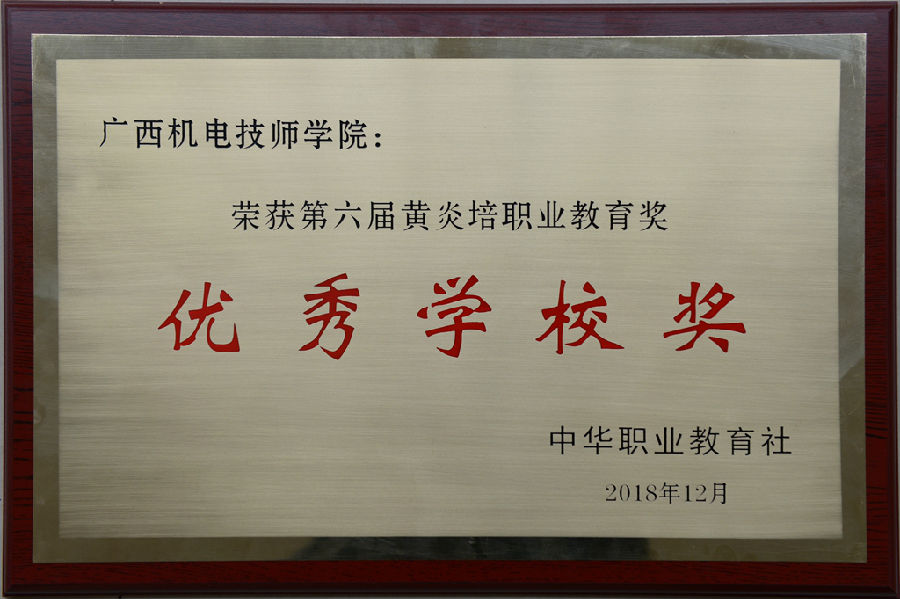 广西机电技师学院：
荣获第六届黄炎培职业教育奖
优秀学校奖
中华职业教育社
2018年12月